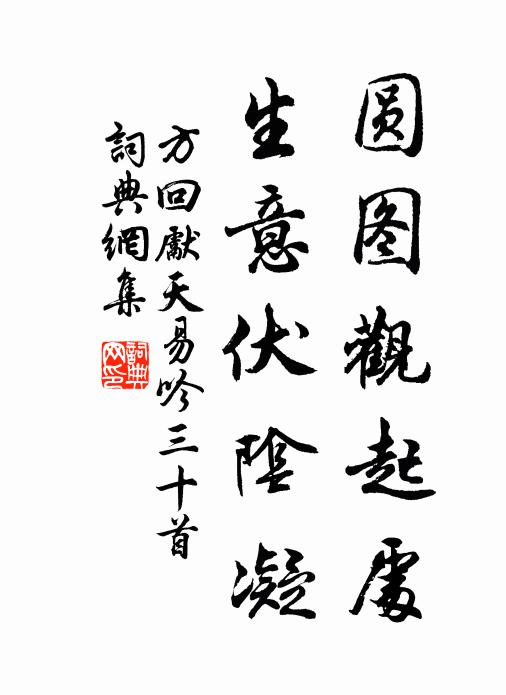 圆图觀起處
生意伏陰凝
方回獻天易吟三十首
詞典網集
詞典网印